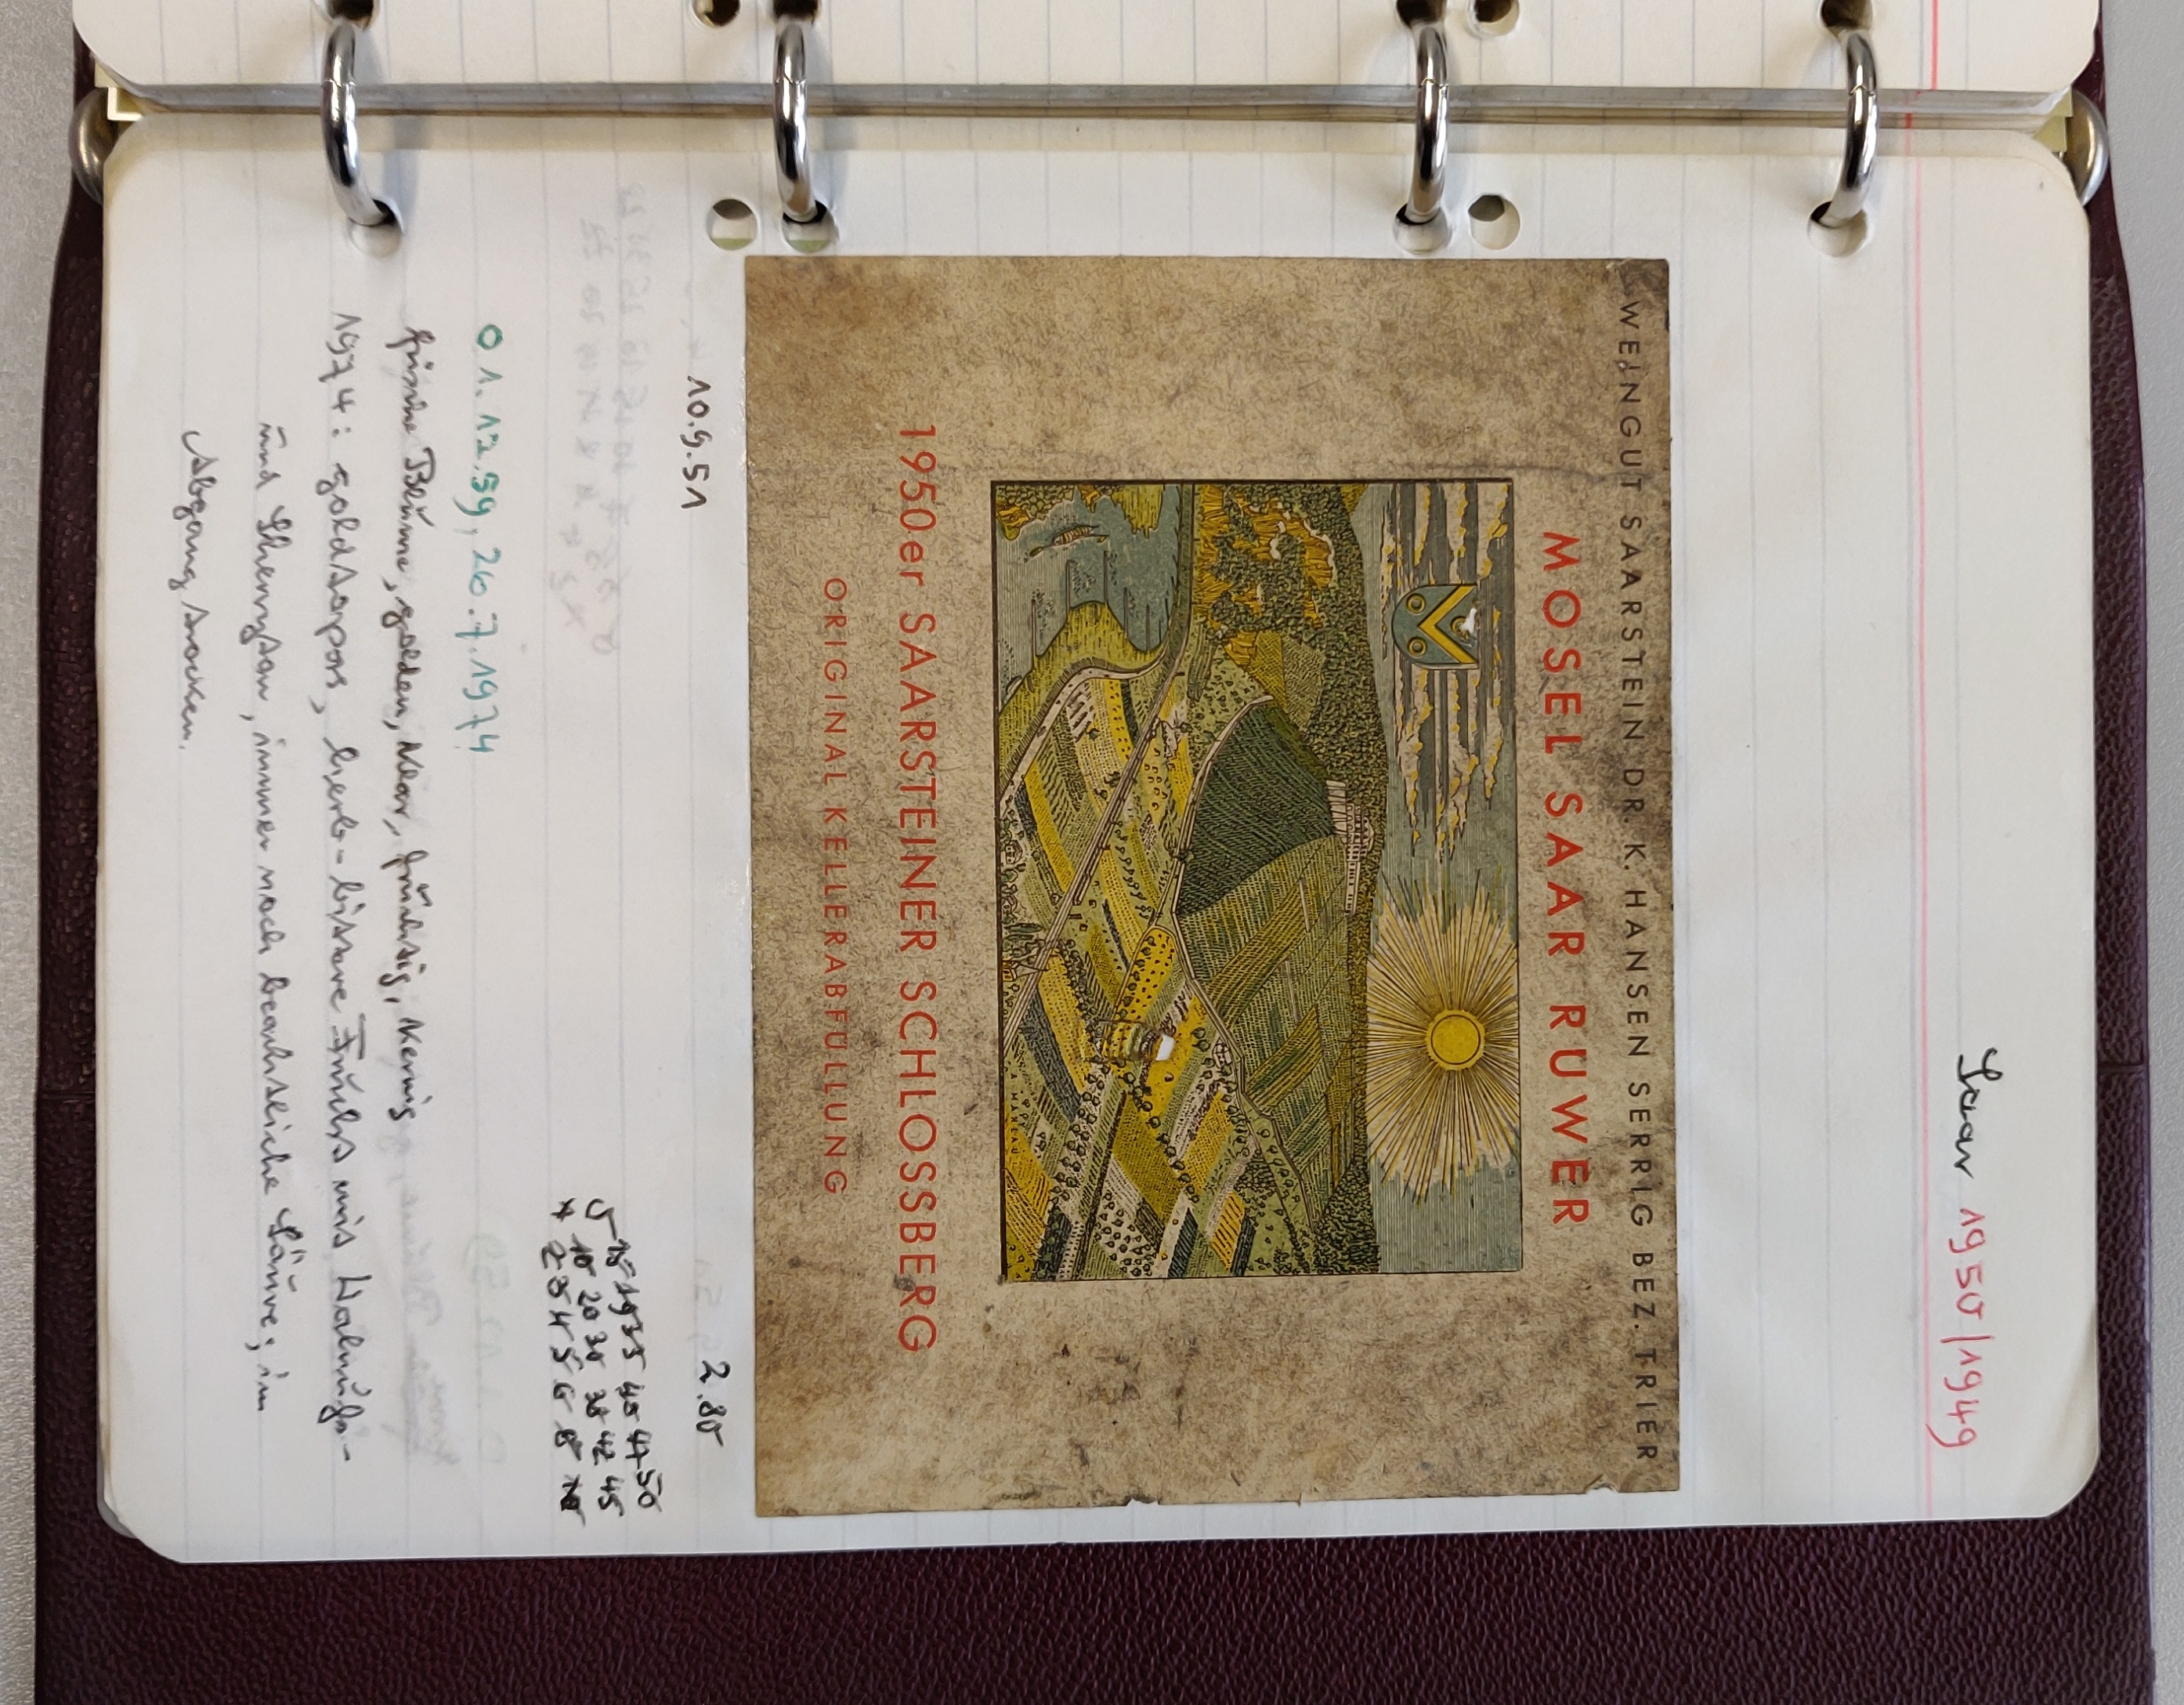 Saar 1950/1949
WEINGUT SAARSTEIN DR. K. HANSEN SERRIG BEZ. TRIER
MOSEL SAAR RUWER
A MAHLAU
1950er SAARSTEINER SCHLOSSBERG
ORIGINAL KELLERABFÜLLUNG
10.9.51
2.80
15 1935 40 47 50
10 20 30 38 42 45
2 3 4 5 6 8 10
O 1.12.59, 26.7.1974
frische Blume, golden, klar, fruchtig, kernig
1974: goldtopas, herb-bittere Frucht mit Walnuß-
und Sherryton, immer noch beachtliche Säure; im
Abgang trocken.